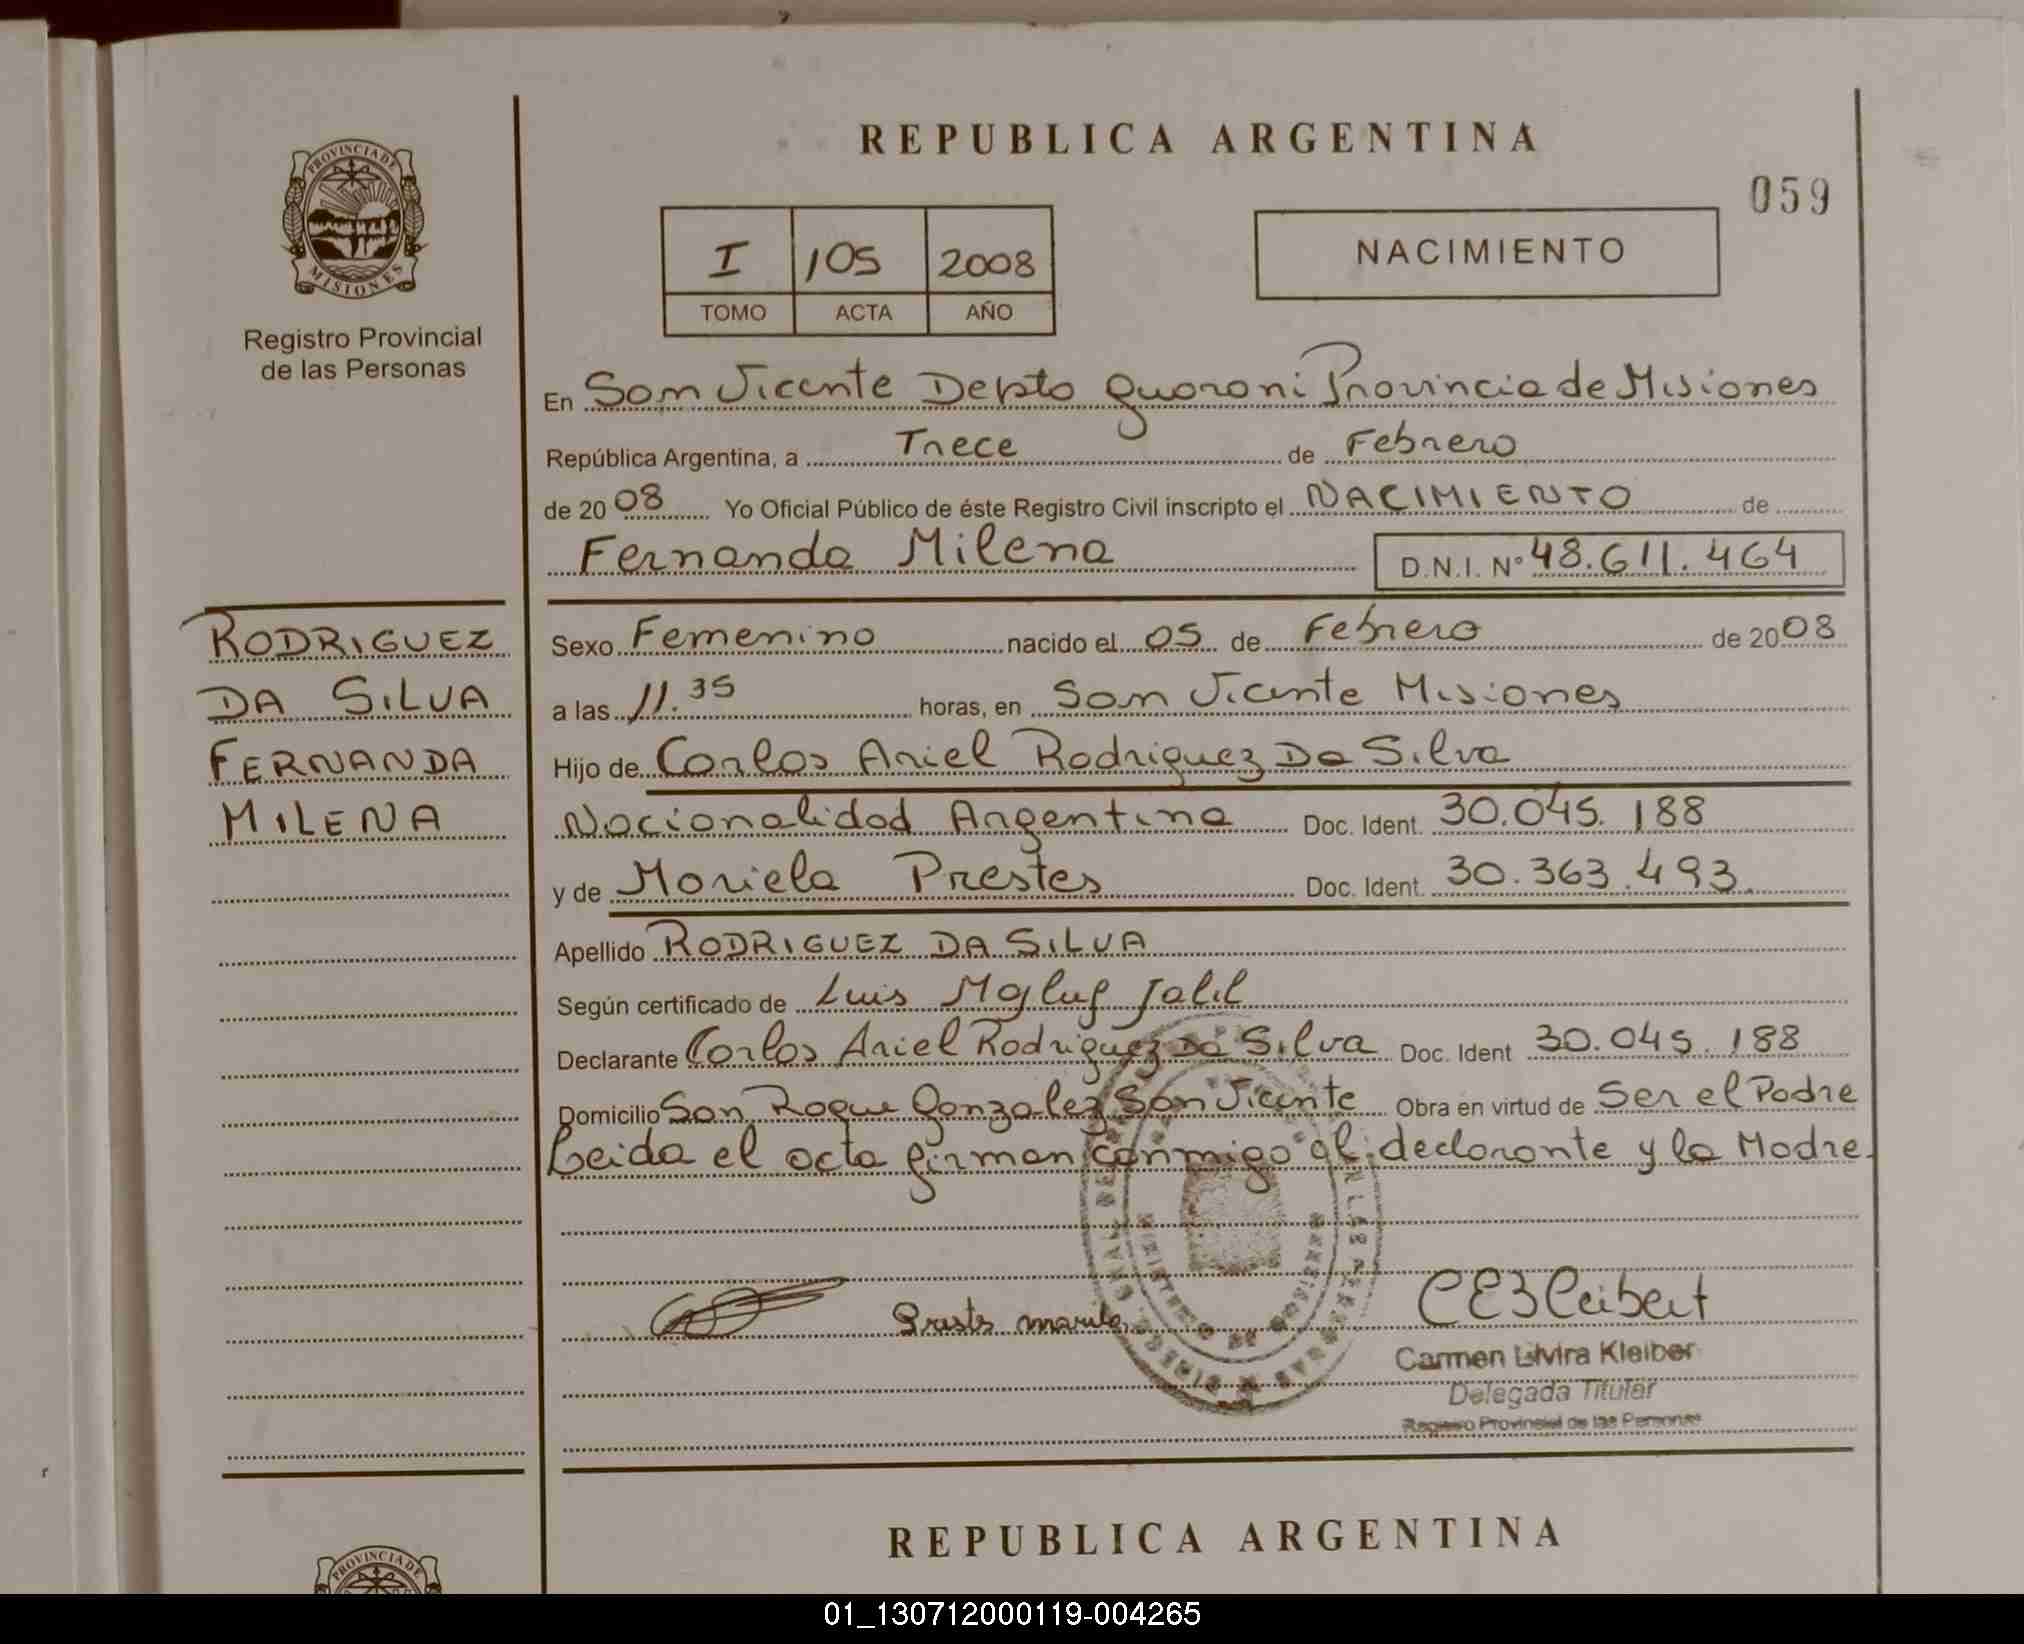 REPUBLICA ARGENTINA
059
PROVINCIA DE MISIONES
Registro Provincial
de las Personas
I 105 2008
TOMO ACTA AÑO
NACIMIENTO
En San Vicente Depto Guarani Provincia de Misiones
República Argentina, a Trece de Febrero
de 2008 Yo Oficial Público de éste Registro Civil inscripto el NACIMIENTO de
Fernanda Milena D.N.I. Nº 48.611.464
RODRIGUEZ
DA SILVA
FERNANDA
MILENA
Sexo Femenino nacido el 05 de Febrero de 2008
a las 11.35 horas, en San Vicente Misiones
Hijo de Carlos Ariel Rodriguez Da Silva
Nacionalidad Argentina Doc. Ident. 30.045.188
y de Mariela Prestes Doc. Ident. 30.363.493.
Apellido RODRIGUEZ DA SILVA
Según certificado de Luis Maluf Jalil
Declarante Carlos Ariel Rodriguez Da Silva Doc. Ident 30.045.188
Domicilio San Roque Gonzalez San Vicente Obra en virtud de Ser el Padre
Leida el acta firman conmigo el declarante y la Madre.
Carmen Elvira Kleiber
Delegada Titular
Registro Provincial de las Personas
REPUBLICA ARGENTINA
PROVINCIA DE
01_130712000119-004265